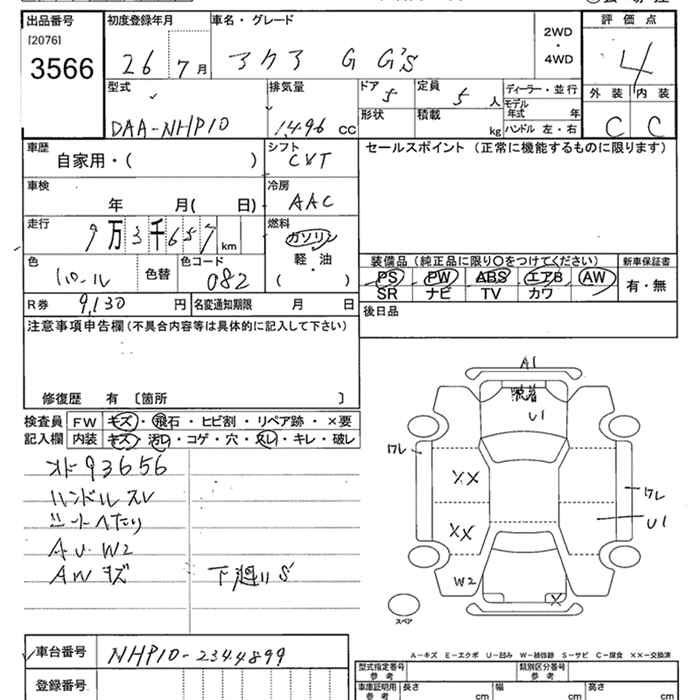 出品番号
[2076]
3566
初度登録年月
26 7月
車名・グレード
アクア G G's
2WD
・
4WD
評価点
4
外装 内装
C C
型式
DAA-NHP10
排気量
1496 CC
ドア
5
定員
5 人
ディーラー・並行
形状
積載
kg
モデル
年式 年
ハンドル 左・右
車歴
自家用・( )
シフト
CVT
車検
年 月( 日)
冷房
AAC
走行
9万3千657km
燃料
ガソリン
軽・油
( ・ )
色
パール
色替
色コード
082
R券
9,130 円
名変通知期限 月 日
セールスポイント (正常に機能するものに限ります)
装備品(純正品に限り○をつけてください)
PS PW ABS エアB AW
SR ナビ TV カワ
新車保証書
有・無
後日品
注意事項申告欄(不具合内容等は具体的に記入して下さい)
修復歴 有 〔箇所 〕
検査員
記入欄
FW キズ・飛石・ヒビ割・リペア跡・×要
内装 キズ・汚レ・コゲ・穴・スレ・キレ・破レ
オド93656
ハンドルスレ
シートヘたり
AU W2
AWキズ
下廻りS
A1
U1
ワレ
XX
XX
ワレ
U1
W2
X
スペア
A-キズ E-エクボ U-凹み W-補修跡 S-サビ C-腐食 XX-交換済
車台番号
NHP10-2344899
登録番号
型式指定番号
参考
類別区分番号
参考
車庫証明用
参考
長さ cm
幅 cm
高さ cm